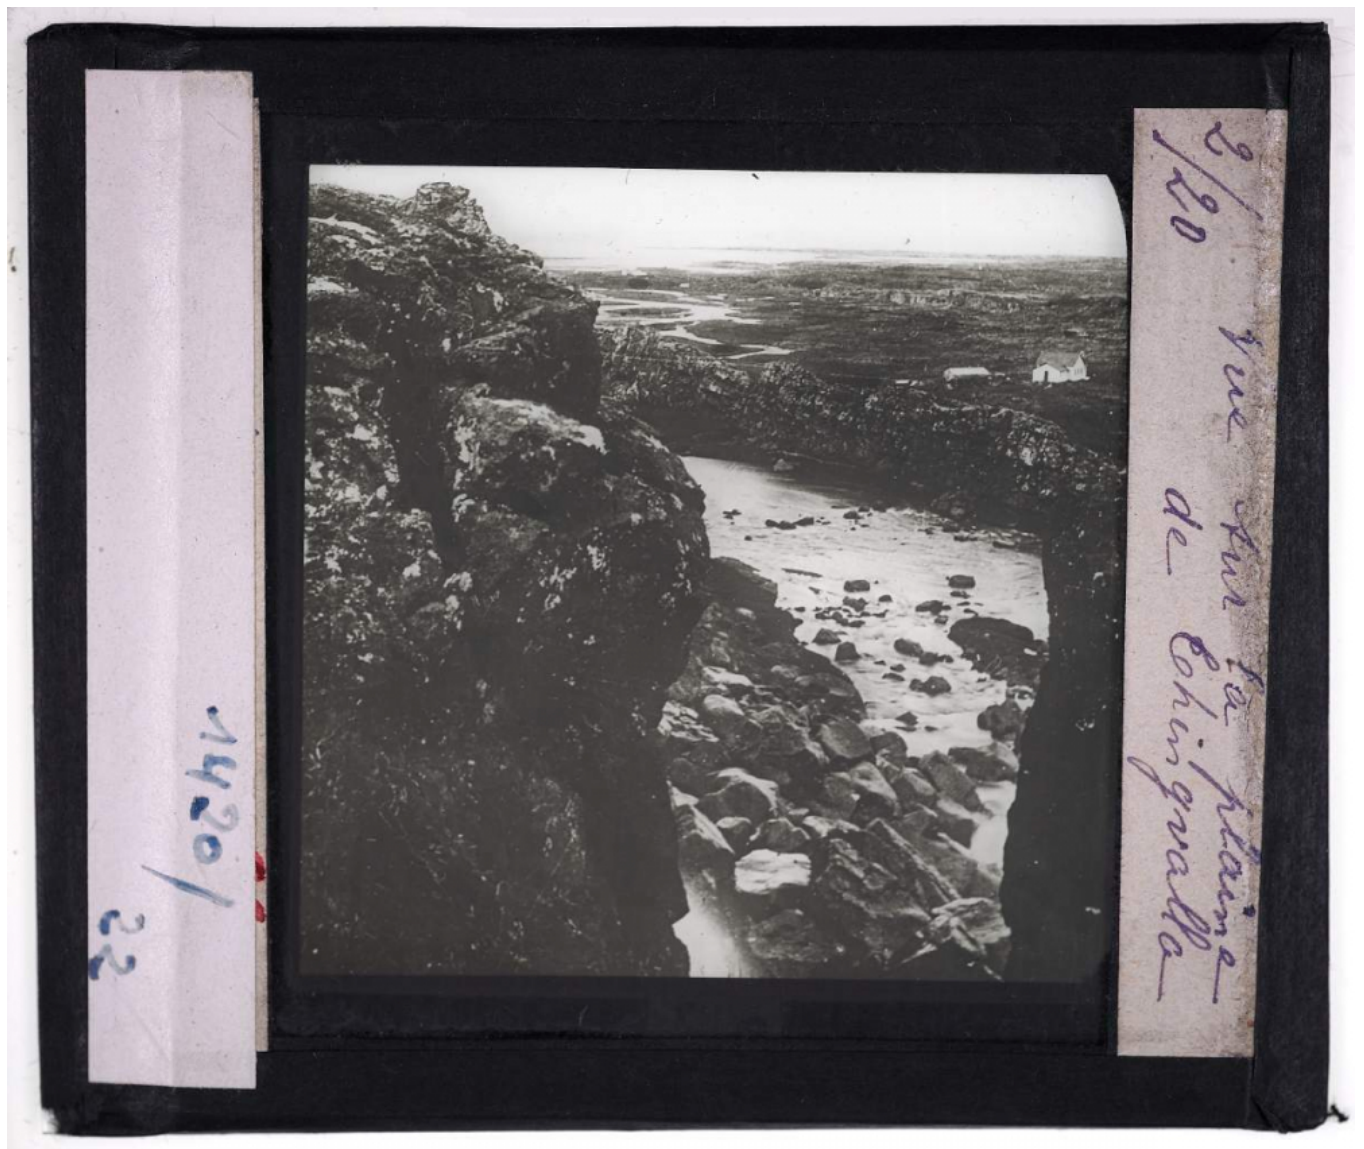 1420/
22
2/20 Vue sur la plaine
de Tchingvalla